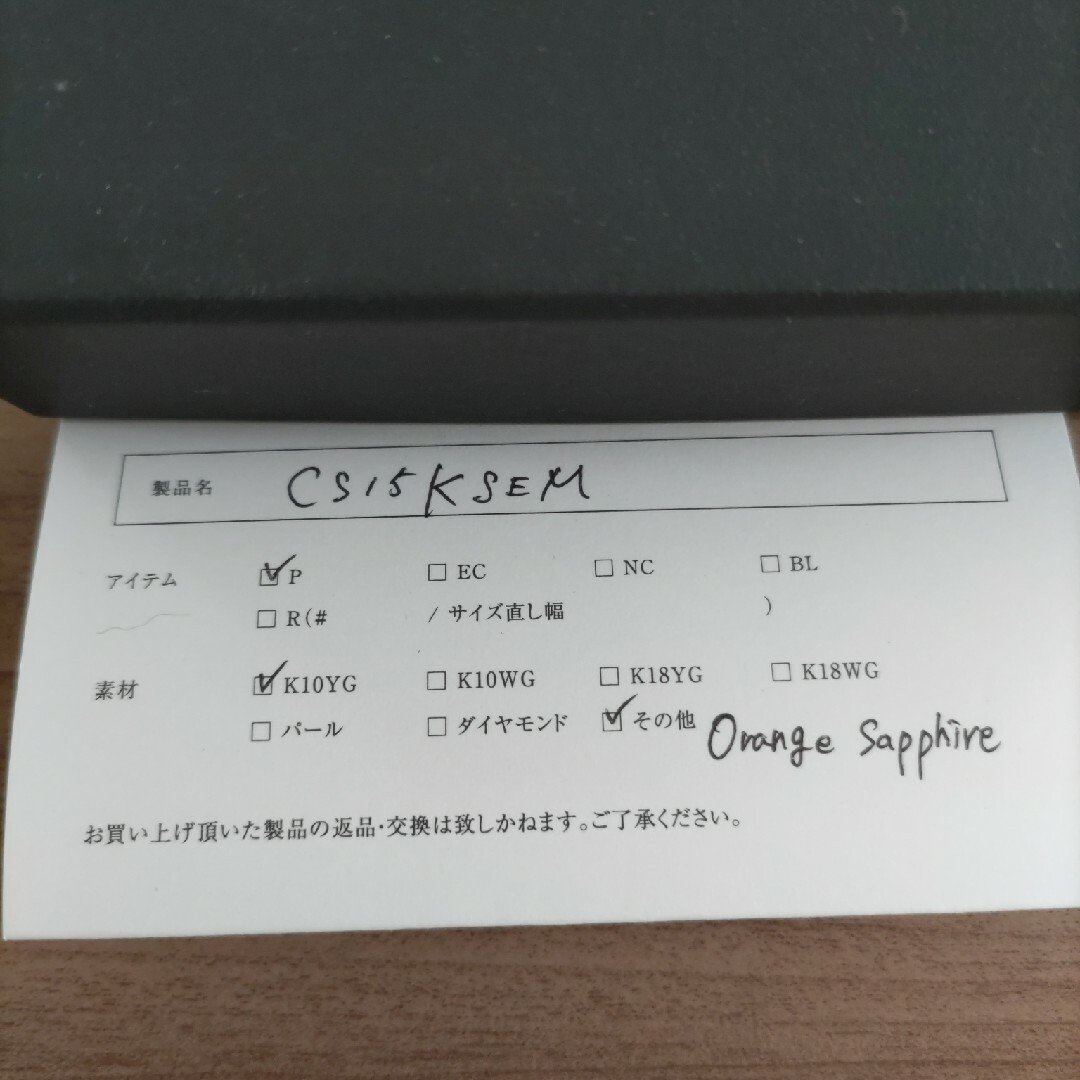 製品名 CS15KSEM
アイテム ☑P □EC □NC □BL
□R(# / サイズ直し幅 )
素材 ☑K10YG □K10WG □K18YG □K18WG
□パール □ダイヤモンド ☑その他 Orange Sapphire
お買い上げ頂いた製品の返品・交換は致しかねます。ご了承ください。